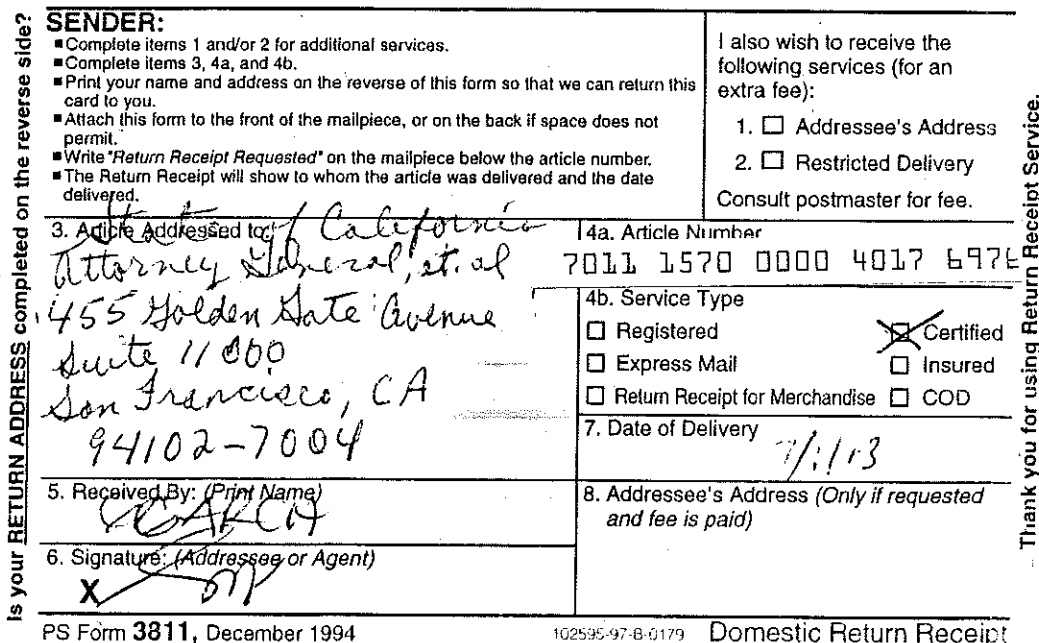 Is your RETURN ADDRESS completed on the reverse side?
SENDER:
■Complete items 1 and/or 2 for additional services.
■Complete items 3, 4a, and 4b.
■Print your name and address on the reverse of this form so that we can return this
card to you.
■Attach this form to the front of the mailpiece, or on the back if space does not
permit.
■Write "Return Receipt Requested" on the mailpiece below the article number.
■The Return Receipt will show to whom the article was delivered and the date
delivered.
I also wish to receive the
following services (for an
extra fee):
1. ☐ Addressee's Address
2. ☐ Restricted Delivery
Consult postmaster for fee.
3. Article Addressed to:
State of California
Attorney General, et. al
455 Golden Gate Avenue
Suite 11000
San Francisco, CA
94102-7004
4a. Article Number
7011 1570 0000 4017 6976
4b. Service Type
☐ Registered
☒ Certified
☐ Express Mail
☐ Insured
☐ Return Receipt for Merchandise ☐ COD
7. Date of Delivery
5. Received By: (Print Name)
8. Addressee's Address (Only if requested
and fee is paid)
6. Signature: (Addressee or Agent)
X
PS Form 3811, December 1994
102595-97-B-0179
Domestic Return Receipt
Thank you for using Return Receipt Service.